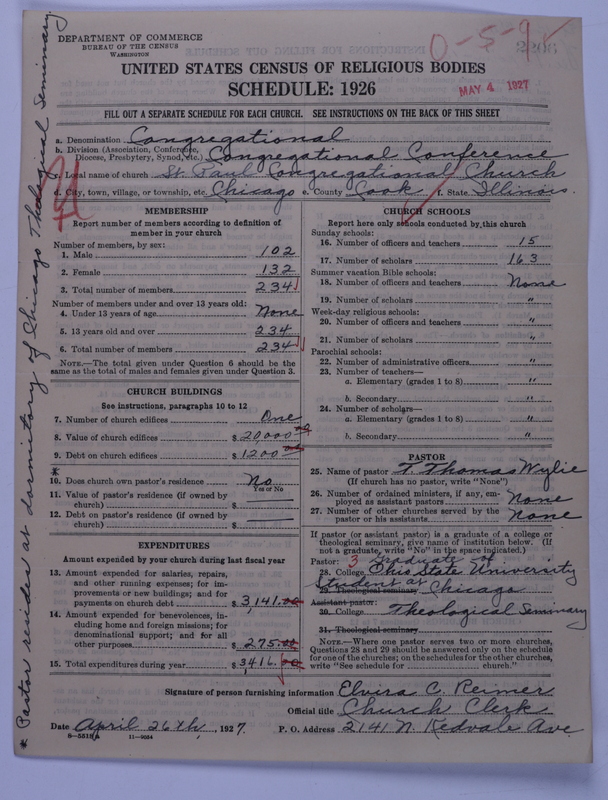 DEPARTMENT OF COMMERCE
BUREAU OF THE CENSUS
WASHINGTON
0-5-9
MAY 4 1927
UNITED STATES CENSUS OF RELIGIOUS BODIES
SCHEDULE: 1926
FILL OUT A SEPARATE SCHEDULE FOR EACH CHURCH. SEE INSTRUCTIONS ON THE BACK OF THIS SHEET
a. Denomination Congregational
b. Division (Association, Conference, Diocese, Presbytery, Synod, etc.) Congregational Conference
c. Local name of church St. Paul Congregational Church
d. City, town, village, or township, etc. Chicago e. County Cook f. State Illinois.
MEMBERSHIP
Report number of members according to definition of
member in your church
Number of members, by sex:
1. Male 102
2. Female 132
3. Total number of members 234
Number of members under and over 13 years old:
4. Under 13 years of age None
5. 13 years old and over 234
6. Total number of members 234
NOTE.—The total given under Question 6 should be the
same as the total of males and females given under Question 3.
CHURCH BUILDINGS
See instructions, paragraphs 10 to 12
7. Number of church edifices One
8. Value of church edifices $ 20,000 00
9. Debt on church edifices $ 1200 00
*
10. Does church own pastor's residence No
Yes or No
11. Value of pastor's residence (if owned by
church) $
12. Debt on pastor's residence (if owned by
church) $
EXPENDITURES
Amount expended by your church during last fiscal year
13. Amount expended for salaries, repairs,
and other running expenses; for im-
provements or new buildings; and for
payments on church debt $ 3,141.00
14. Amount expended for benevolences, in-
cluding home and foreign missions; for
denominational support; and for all
other purposes $ 275.00
15. Total expenditures during year $ 3,416.00
CHURCH SCHOOLS
Report here only schools conducted by this church
Sunday schools:
16. Number of officers and teachers 15
17. Number of scholars 163
Summer vacation Bible schools:
18. Number of officers and teachers None
19. Number of scholars "
Week-day religious schools:
20. Number of officers and teachers "
21. Number of scholars "
Parochial schools:
22. Number of administrative officers "
23. Number of teachers—
a. Elementary (grades 1 to 8) "
b. Secondary "
24. Number of scholars—
a. Elementary (grades 1 to 8) "
b. Secondary "
PASTOR
25. Name of pastor T. Thomas Wylie
(If church has no pastor, write "None")
26. Number of ordained ministers, if any, em-
ployed as assistant pastors None
27. Number of other churches served by the
pastor or his assistants None
If pastor (or assistant pastor) is a graduate of a college or
theological seminary, give name of institution below. (If
not a graduate, write "No" in the space indicated.)
Pastor: 3 Graduate of
28. College Ohio State University
Student at
29. Theological seminary Chicago
Assistant pastor:
30. College Theological Seminary
31. Theological seminary
NOTE.—Where one pastor serves two or more churches,
Questions 28 and 29 should be answered only on the schedule
for one of the churches; on the schedules for the other churches,
write "See schedule for church."
Signature of person furnishing information Elvira C. Reimer
Official title Church Clerk
Date April 26th, 1927. P. O. Address 2141 N. Kedvale Ave
8—5518a 11—9034
* Pastor resides at dormitory of Chicago Theological Seminary